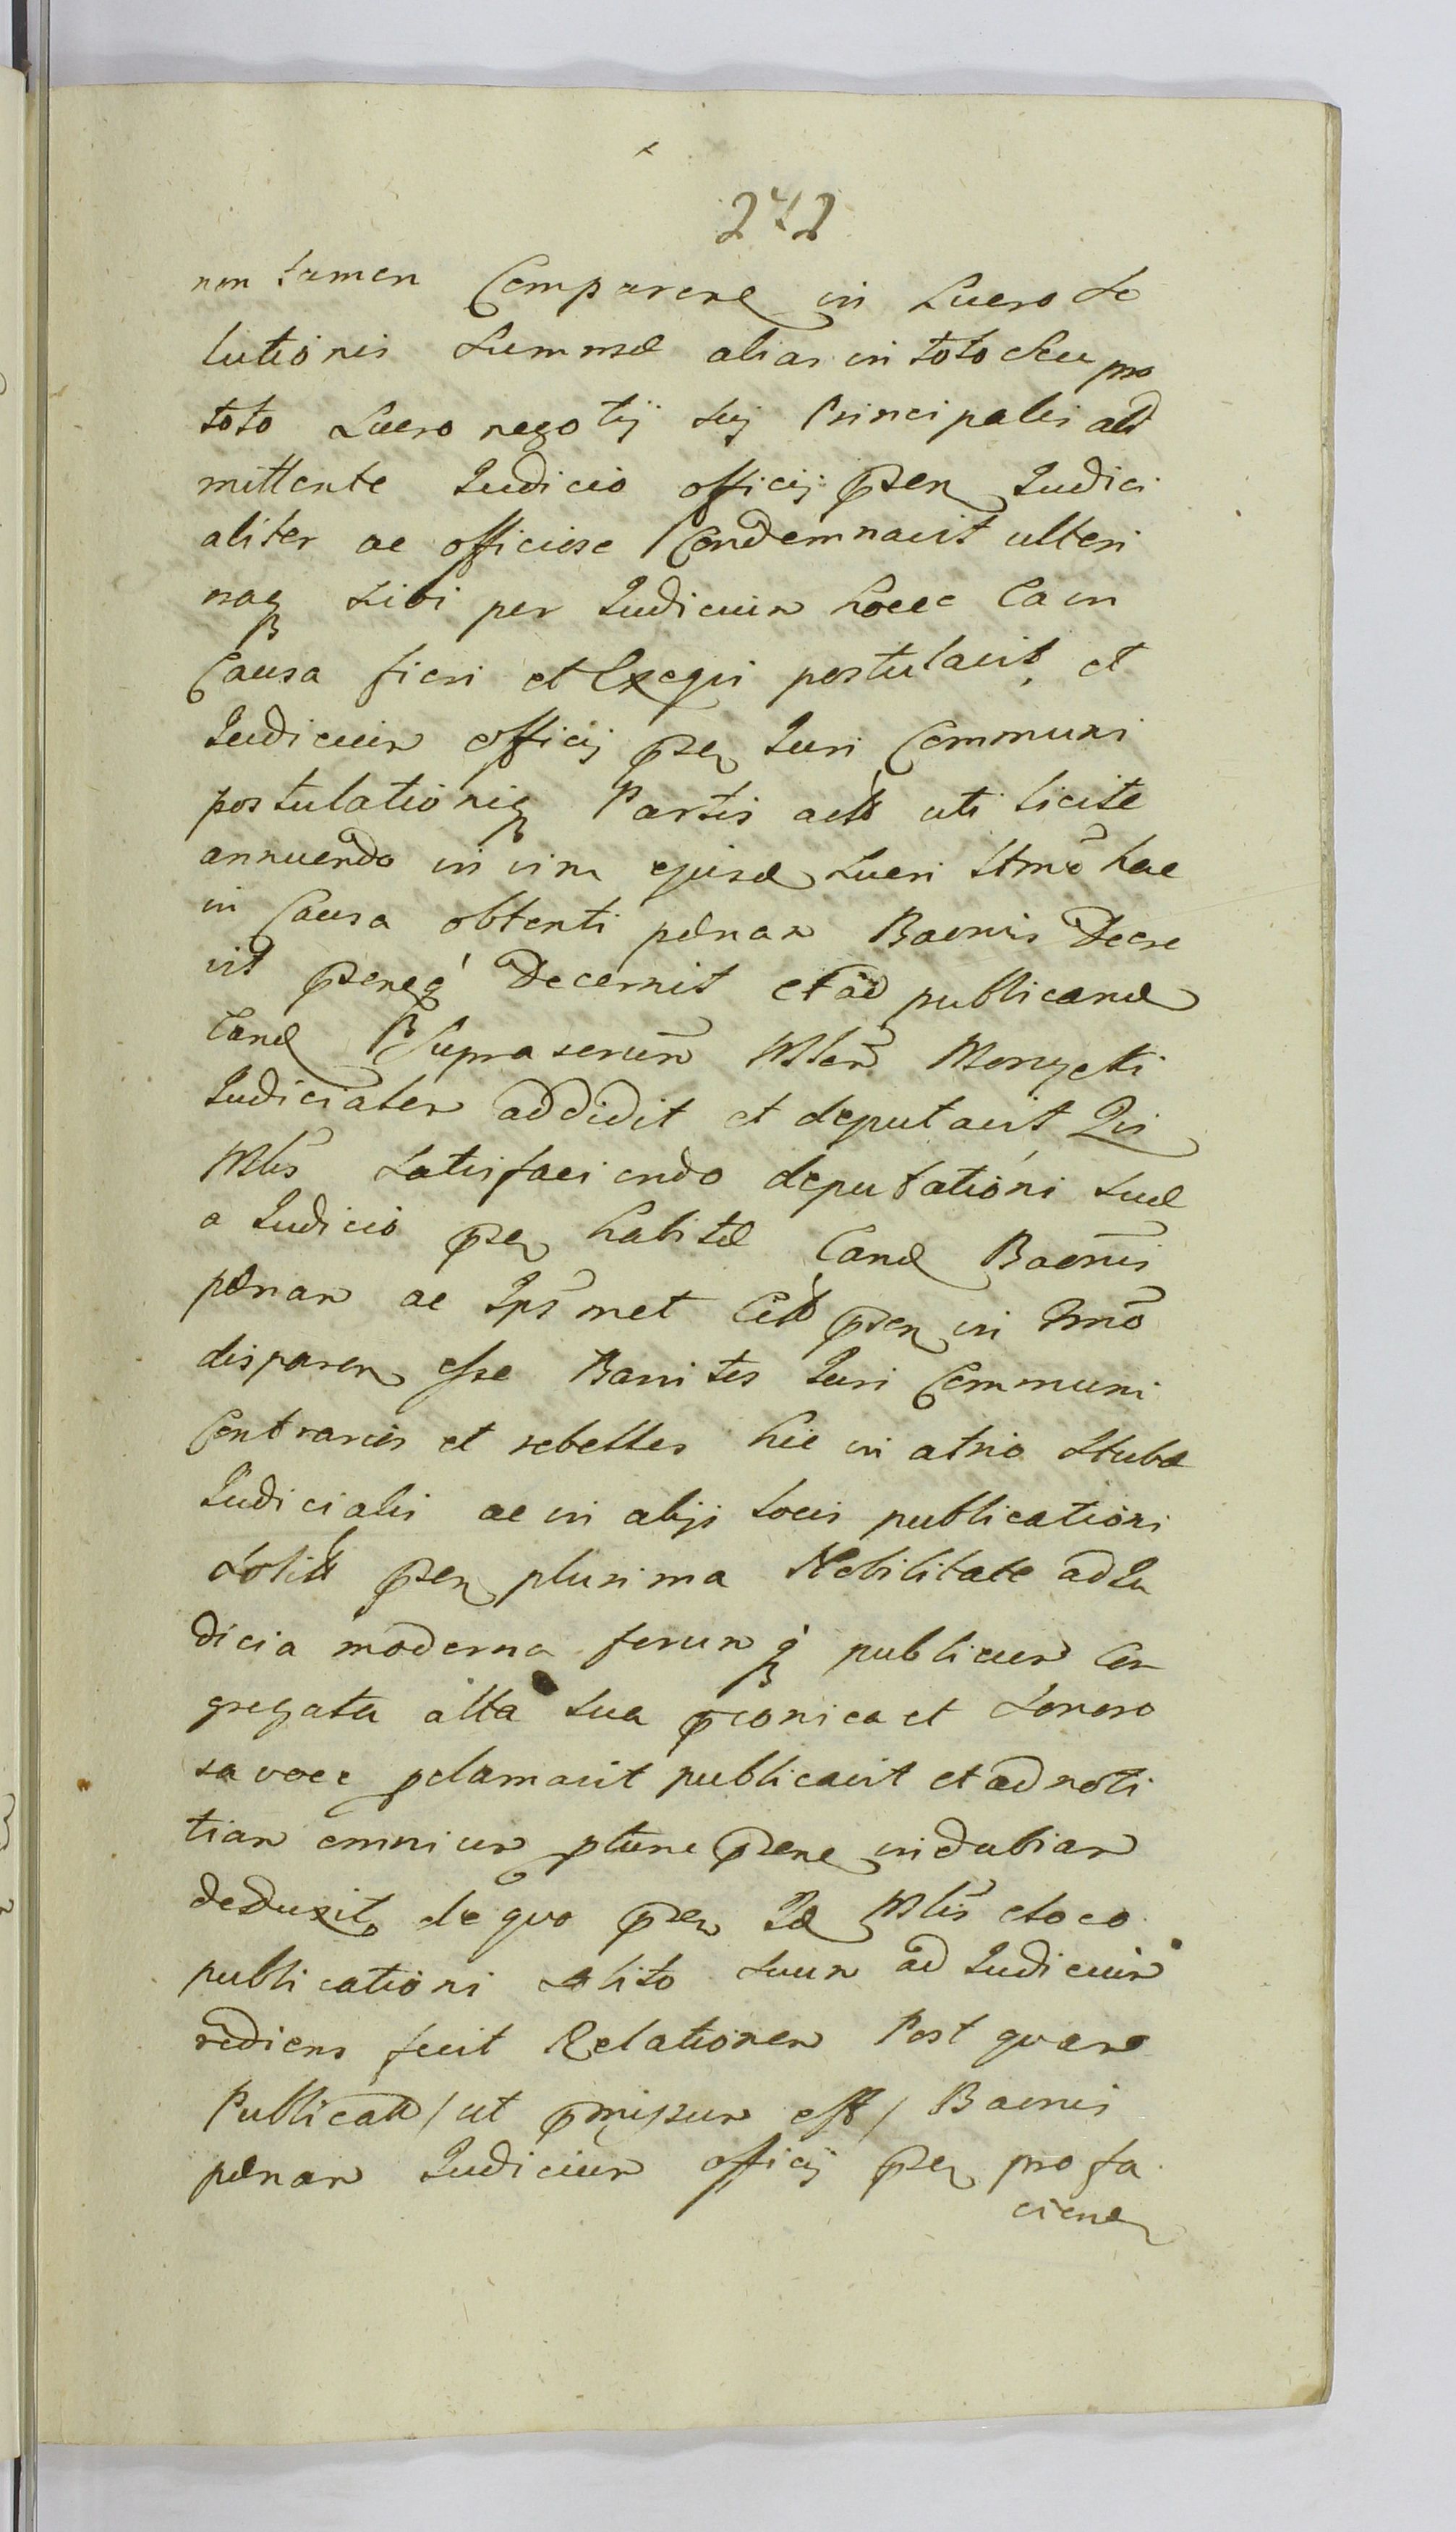 242
non tamen Comparene in Lucro So
lutionis Summæ alias in toto seu pro
toto Lucro negotij sui Principalis ad
mittente Iudicio officij psen Iudici
aliter ac officiose Condemnavit ulteri
usq sibi per Iudicium hocce ea in
Causa fieri et Exequi postulavit, et
Iudicium officij psen Iuri Communi
postulationiq Partis acto uti licite
annuendo in vim ejusd Lucri Stmo hac
in Causa obtenti pænam Baonis Decre
vit pseneq Decernit et ad publicand
eand Suprasenem Mlem Monycki
Iudicialem addidit et deputavit Qui
Mlis satisfaciendo deputationi suæ
a Iudicio psen habitæ eand Baonis
pænam ac Ipsmet Citt psen in Tmo
disparen esse Banitos Iuri Communi
Contrarios et rebelles hic in atrio Stubæ
Iudicialis ac in alijs locis publicationi
solitt psen plurima Nobilitate ad Iu
dicia moderna forumq publicum Con
gregata alta sua pconica et sonoro
sa voce pclamavit publicavit et ad noti
tiam omnium plene psene indubiam
deduxit, de quo psen Id Mlis e loco
publicationi solito suum ad Iudicium
rediens fecit Relationem Post quam
Publicatt / ut pmissum est / Baonis
pænam Iudicium officij psen pro fa
ciend